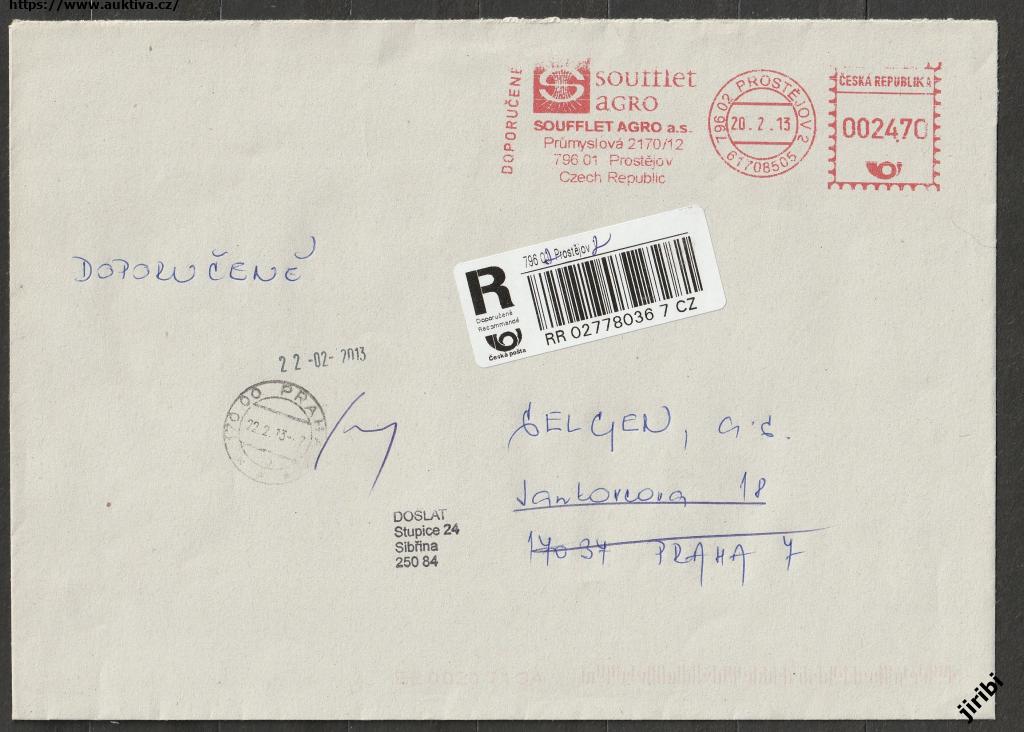 https://www.auktiva.cz/
DOPORUČENĚ
soufflet
AGRO
SOUFFLET AGRO a.s.
Průmyslová 2170/12
796 01 Prostějov
Czech Republic
796 02 PROSTĚJOV 2
20.2.13
61708505
ČESKÁ REPUBLIKA
002470
DOPORUČENĚ
R
Doporučeně
Recommandé
Česká pošta
796 02 Prostějov 2
RR 02778036 7 CZ
22-02-2013
170 00 PRAHA
22.2.13
SELGEN, a.s.
Jankovcova 18
170 37 PRAHA 7
DOSLAT
Stupice 24
Sibřina
250 84
jiribi